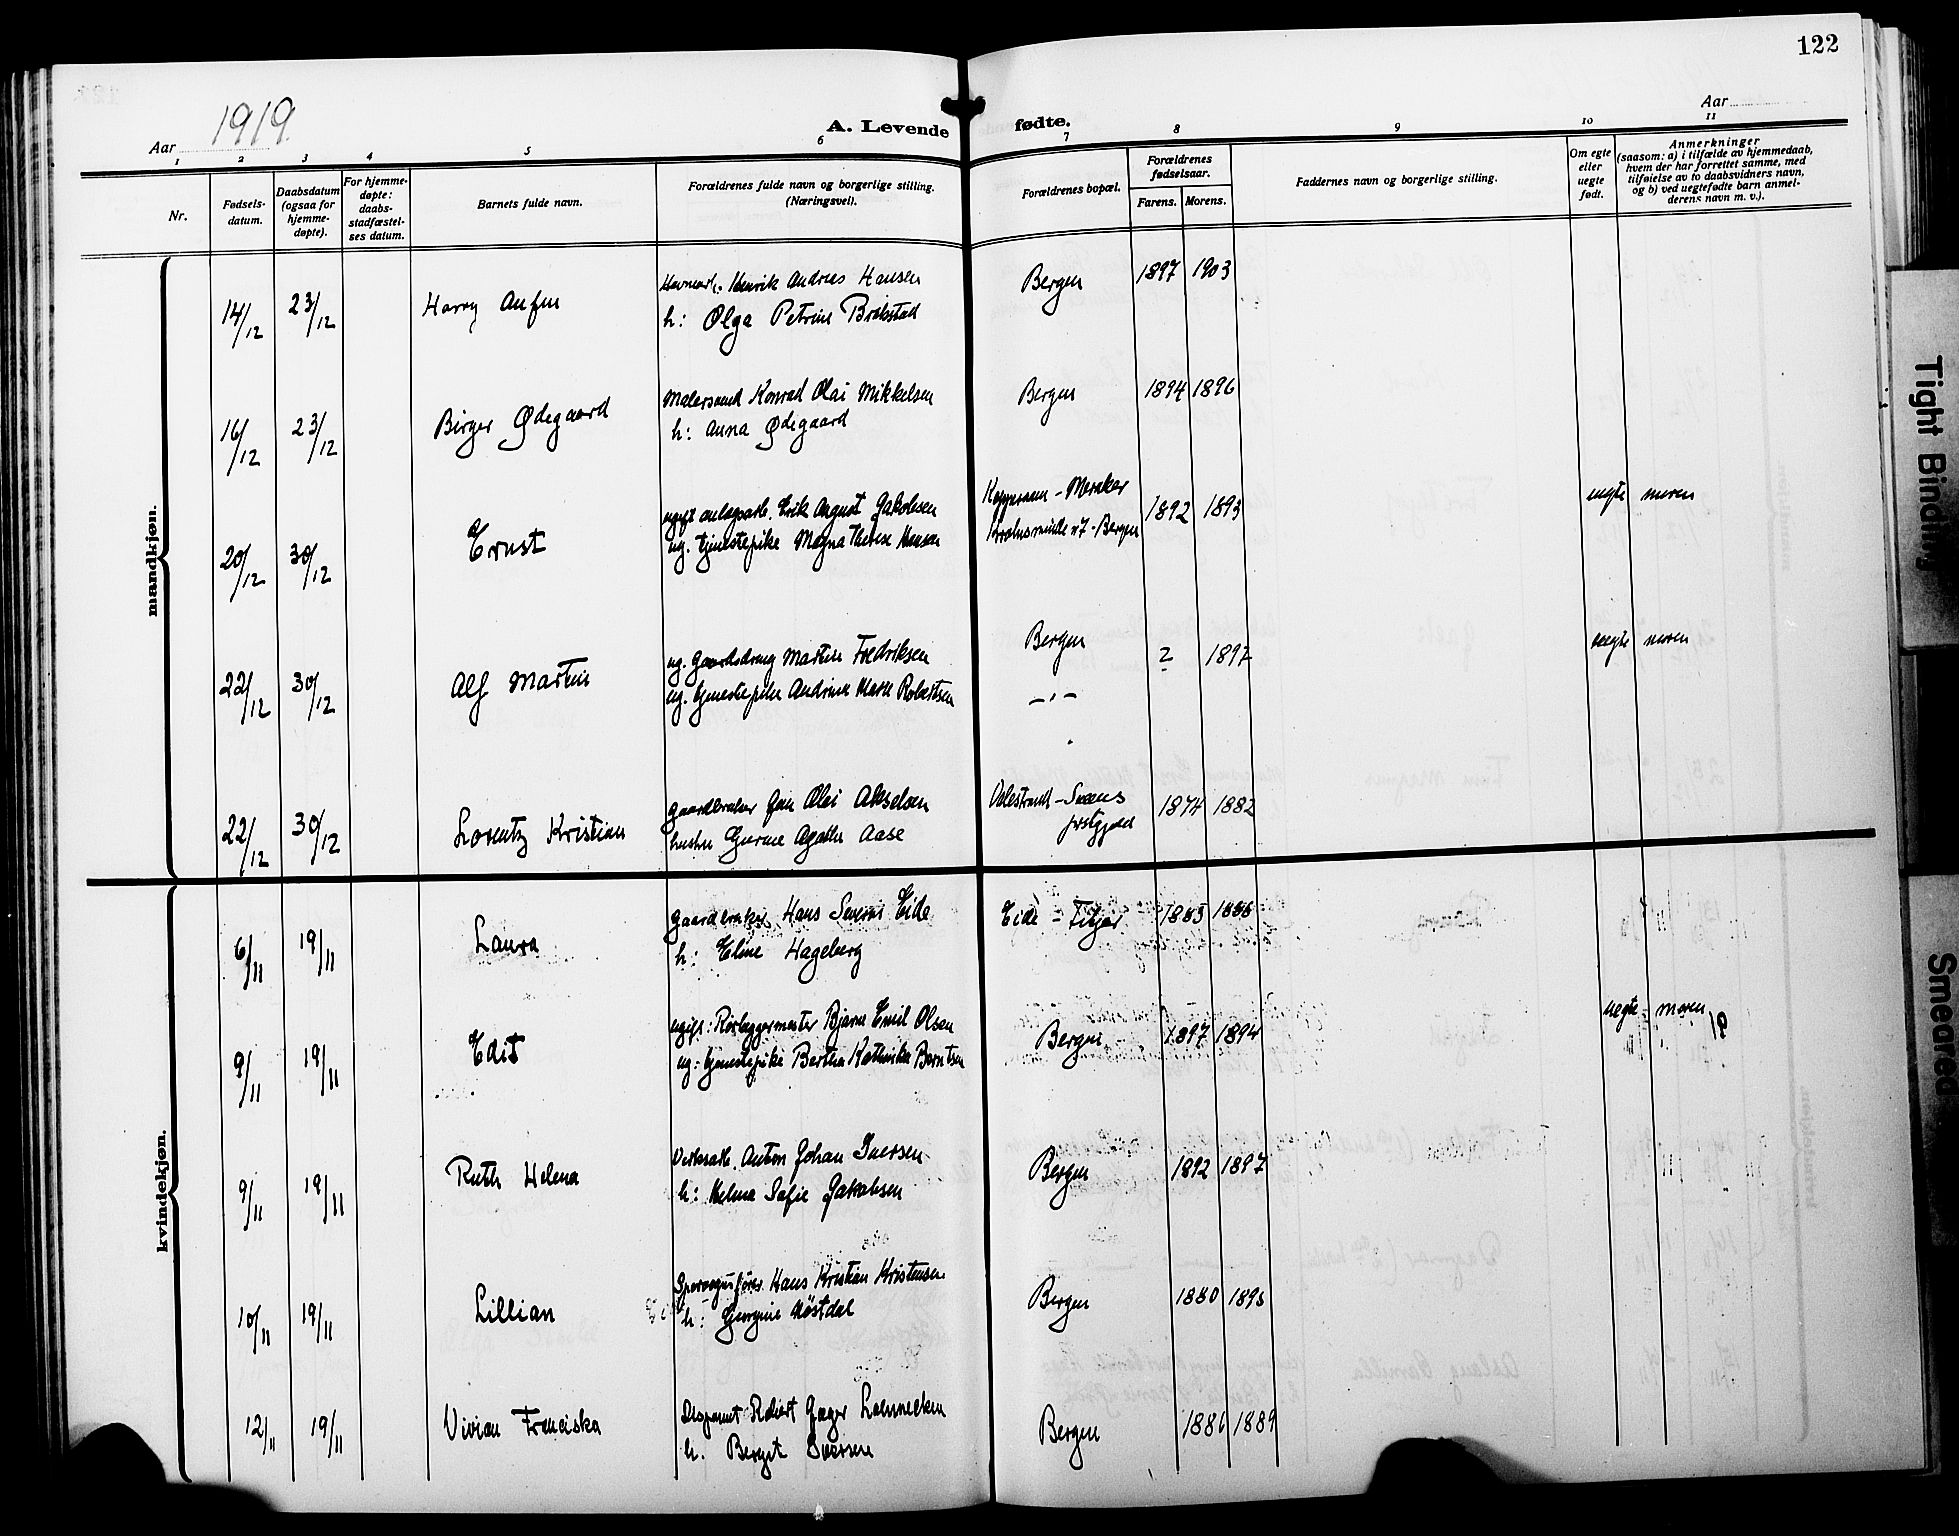 122
Aar 1919.
A. Levende fødte.
Aar
1 2 3 4 5 6 7 8 9 10 11
Nr.
Fødsels-
datum.
Daabsdatum
(ogsaa for
hjemme-
døpte).
For hjemme-
døpte:
daabs-
stadfæstel-
ses datum.
Barnets fulde navn.
Forældrenes fulde navn og borgerlige stilling.
(Næringsvei).
Forældrenes bopæl.
Forældrenes
fødselsaar.
Farens. Morens.
Faddernes navn og borgerlige stilling.
Om egte
eller
uegte
født.
Anmerkninger
(saasom: a) i tilfælde av hjemmedaab,
hvem der har forrettet samme, med
tilføielse av to daabsvidners navn,
og b) ved uegtefødte barn anmel-
derens navn m. v.).
mandkjøn.
14/12 23/12 Harry Henrik Andreas Hansen Bergen 1897 1903
h: Olga Petrine
16/12 23/12 Birger Ødegaard Malersvend Konrad Olai Mikkelsen Bergen 1894 1896
h: Anna Ødegaard
20/12 30/12 Ernst ugift anlægsarb. Erik August Jakobsen Meraker 1892 1893 uegte moren
ug. tjenestepike Magna Therese Hansen Bergen
22/12 30/12 Alf Martin ug. Gaardsdreng Martin Fredriksen Bergen ? 1897 uegte moren
ug. tjenestepike Andrine Marie Robertsen -"-
22/12 30/12 Lorentz Kristian Gaardbruker Olai Akselsen 1874 1882
hustru Agathe Aase
kvindekjøn.
6/11 19/11 Laura Gaardbruker Hans Severin Eide Eide - Fitjar 1883 1888
h: Eline Hageberg
9/11 19/11 Edit ugift: Rørlæggermester Bjarne Emil Olsen Bergen 1897 1894 uegte moren
ug: tjenestepike Bertha Kathinka Berntsen
9/11 19/11 Ruth Helena Verksarb. Anton Johan Iversen Bergen 1892 1897
h: Helma Sofie Jakobsen
10/11 19/11 Lillian Sporvognsfører Hans Kristian Kristensen Bergen 1880 1895
h: Georgine Høstdal
12/11 19/11 Vivian Franciska Disponent Robert Bergen 1886 1889
h. Bergit Iversen
Tight Binding
Smeared